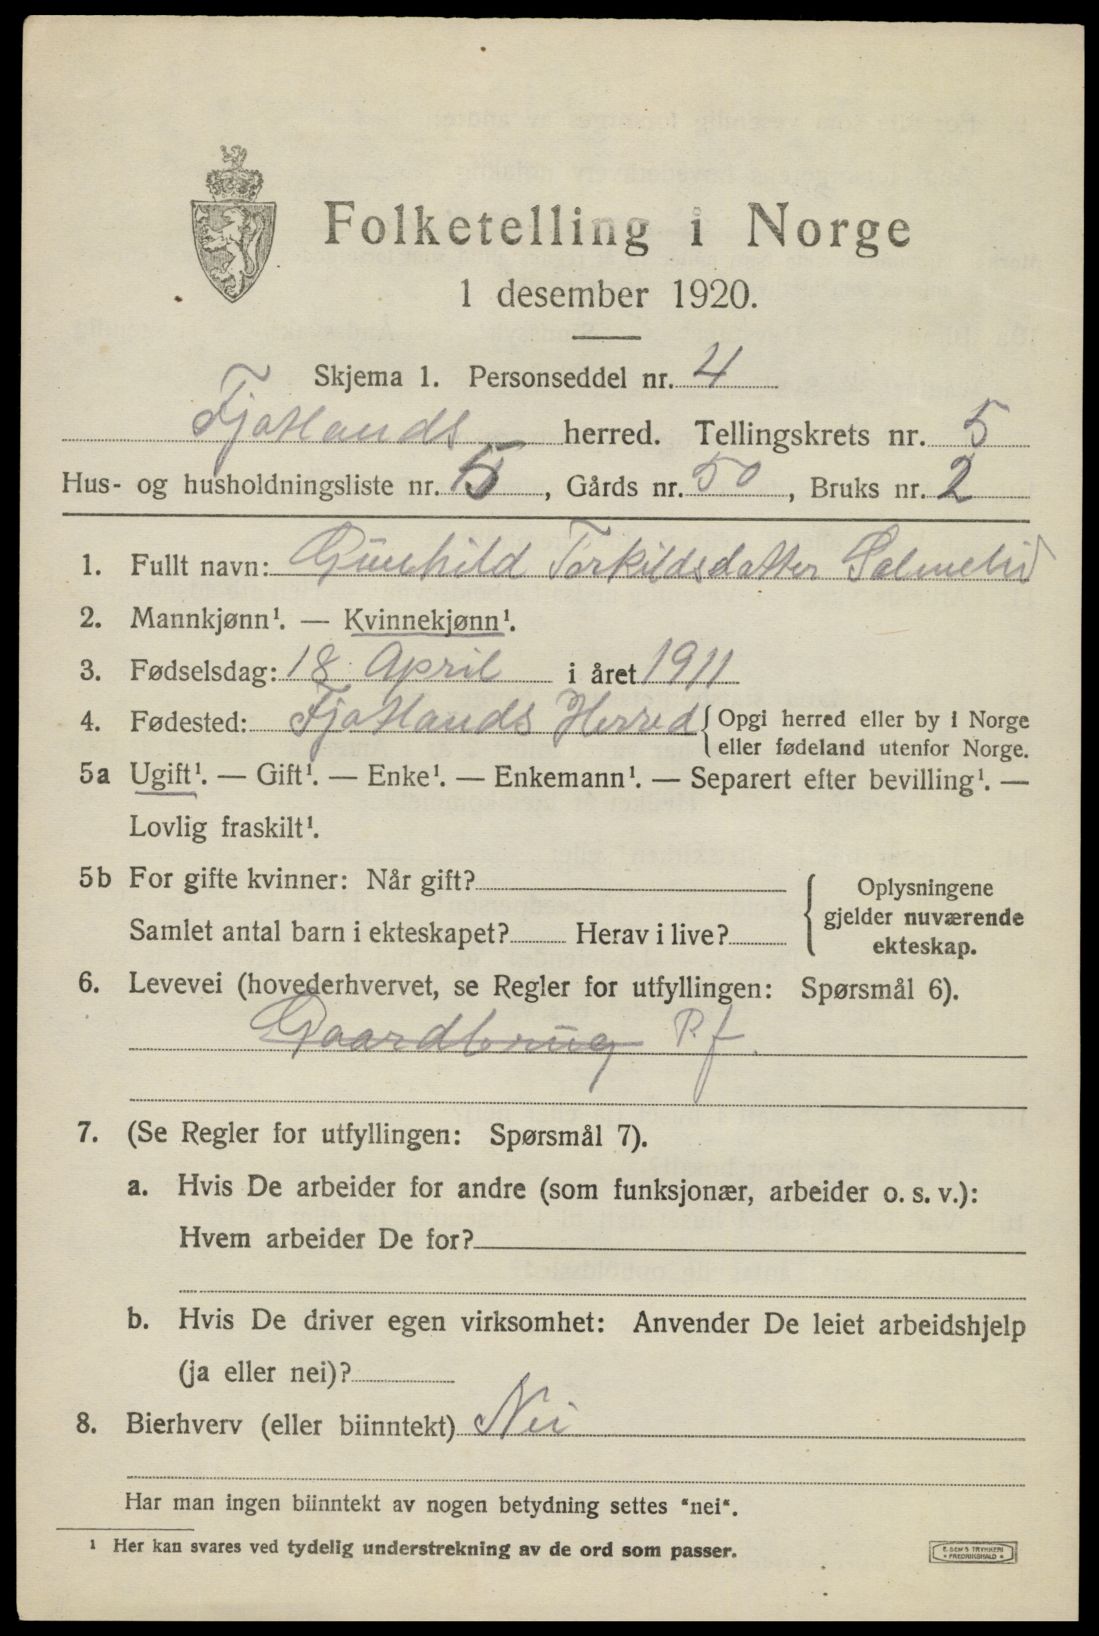 Folketelling i Norge
1 desember 1920.
Skjema 1. Personseddel nr. 4
Fjotlands herred. Tellingskrets nr. 5
Hus- og husholdningsliste nr. 5, Gårds nr. 50, Bruks nr. 2
1. Fullt navn: Gunhild Torkildsdatter Salmelid
2. Mannkjønn¹. — Kvinnekjønn¹.
3. Fødselsdag: 18 April i året 1911
4. Fødested: Fjotlands Herred {Opgi herred eller by i Norge
eller fødeland utenfor Norge.
5a Ugift¹. — Gift¹. — Enke¹. — Enkemann¹. — Separert efter bevilling¹. —
Lovlig fraskilt¹.
5b For gifte kvinner: Når gift?
Samlet antal barn i ekteskapet? Herav i live?
{ Oplysningene
gjelder nuværende
ekteskap.
6. Levevei (hovederhvervet, se Regler for utfyllingen: Spørsmål 6).
Gaardbrug P. f.
7. (Se Regler for utfyllingen: Spørsmål 7).
a. Hvis De arbeider for andre (som funksjonær, arbeider o. s. v.):
Hvem arbeider De for?
b. Hvis De driver egen virksomhet: Anvender De leiet arbeidshjelp
(ja eller nei)?
8. Bierhverv (eller biinntekt) Nei
Har man ingen biinntekt av nogen betydning settes "nei".
¹ Her kan svares ved tydelig understrekning av de ord som passer.
E. SEM'S TRYKKERI
FREDRIKSHALD